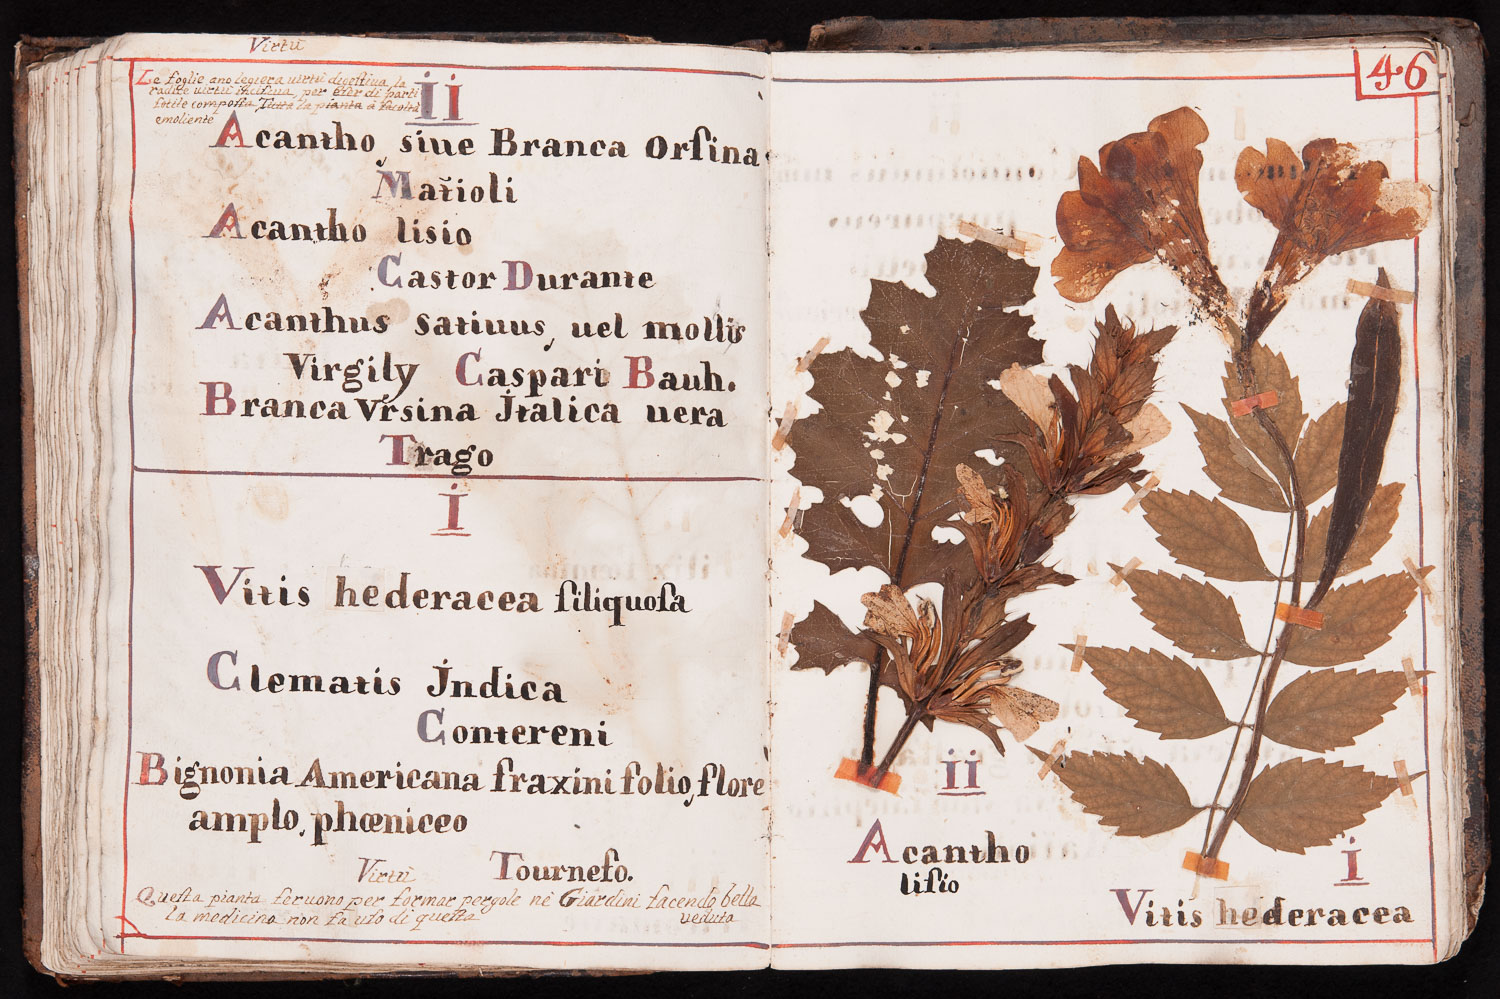 Virtù
Le foglie ano legiera uirtù digestiua, la
radice uirtù incisiua, per eser di parti
sottile composta, Tutta la pianta à facoltà
emoliente
ii
Acantho, siue Branca Orsina
Matioli
Acantho lisio
Castor Durante
Acanthus satiuus, uel mollis
Virgily Caspari Bauh.
Branca Vrsina Jtalica uera
Trago
i
Vitis hederacea siliquosa
Clematis Jndica
Contereni
Bignonia Americana fraxini folio, flore
amplo, phœniceo
Tournefo.
Virtù
Questa pianta seruono per formar pergole nè Giardini facendo bella
la medicina non fa uso di questa ueduta
46
ii
Acantho
lisio
i
Vitis hederacea